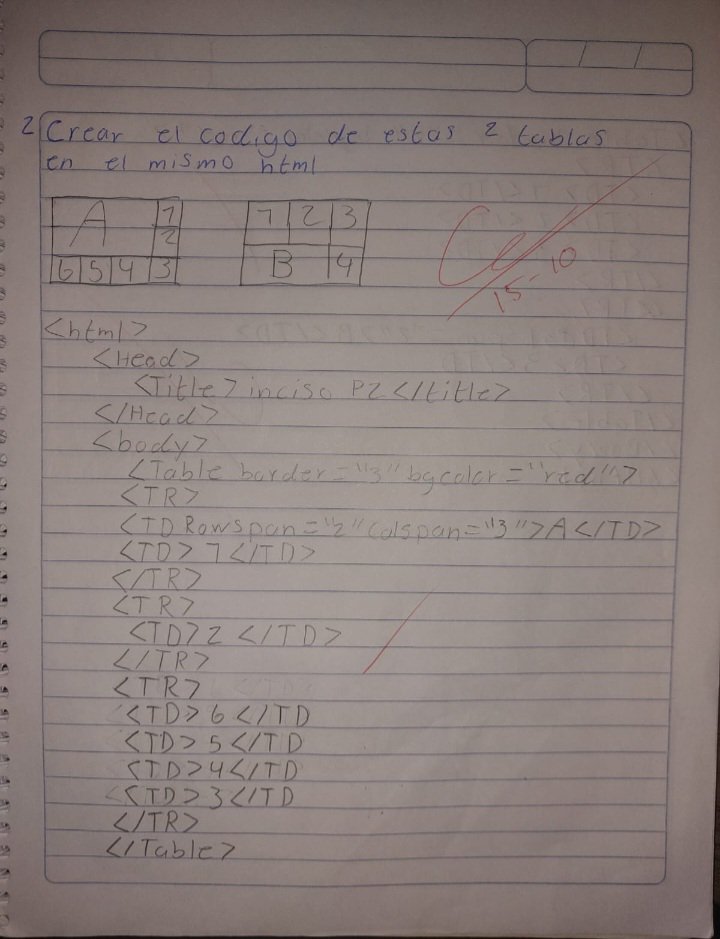 2 Crear el codigo de estas 2 tablas
en el mismo html
A 1
2
6 5 4 3
1 2 3
B 4
15-10
<html>
<Head>
<Title> inciso P2 </title>
</Head>
<body>
<Table border="3" bgcolor="red">
<TR>
<TD Rowspan="2" colspan="3">A</TD>
<TD>1</TD>
</TR>
<TR>
<TD>2 </TD>
</TR>
<TR>
<TD>6</TD
<TD>5</TD
<TD>4</TD
<TD>3</TD
</TR>
</Table>